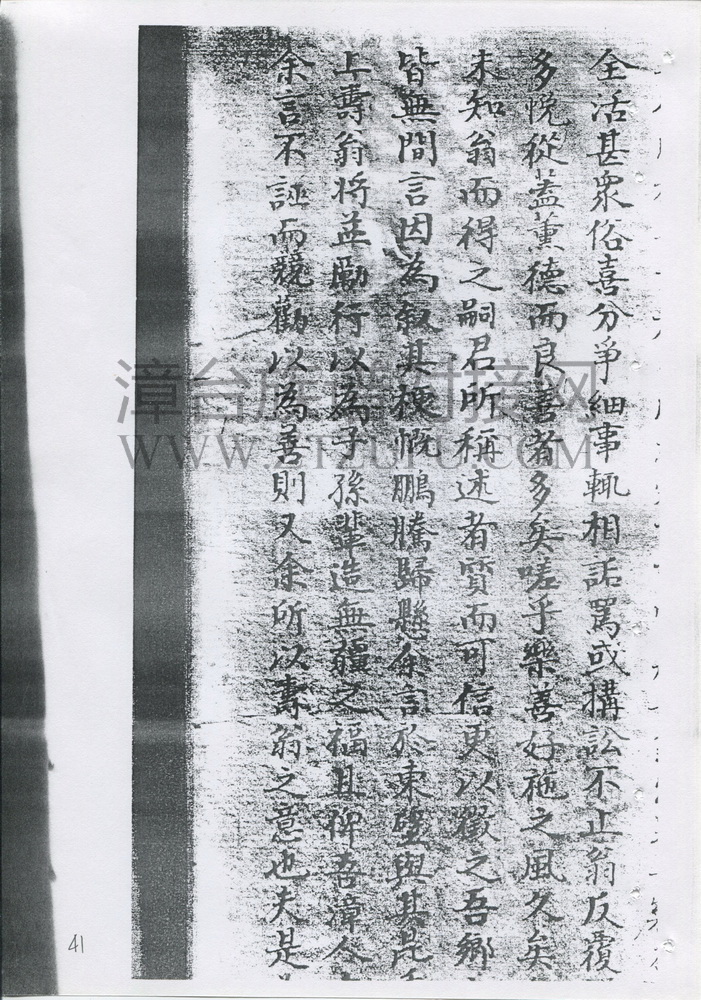 全活甚眾俗喜分爭細事輒相詬罵或搆訟不止翁反覆
多悅從蓋薰德而良善者多矣嗟乎樂善好施之風久矣
未知翁而得之嗣君所稱述者質而可信更以徵之吾鄉
皆無間言因為叙其梗慨鵬騰歸懸余言於東壁與其昆
上壽翁將益勵行以為子孫輩造無疆之福且俾吾漳人
余言不誣而競勸以為善則又余所以壽翁之意也夫是
漳台族谱对接网
WWW.ZTZUPU.COM
41